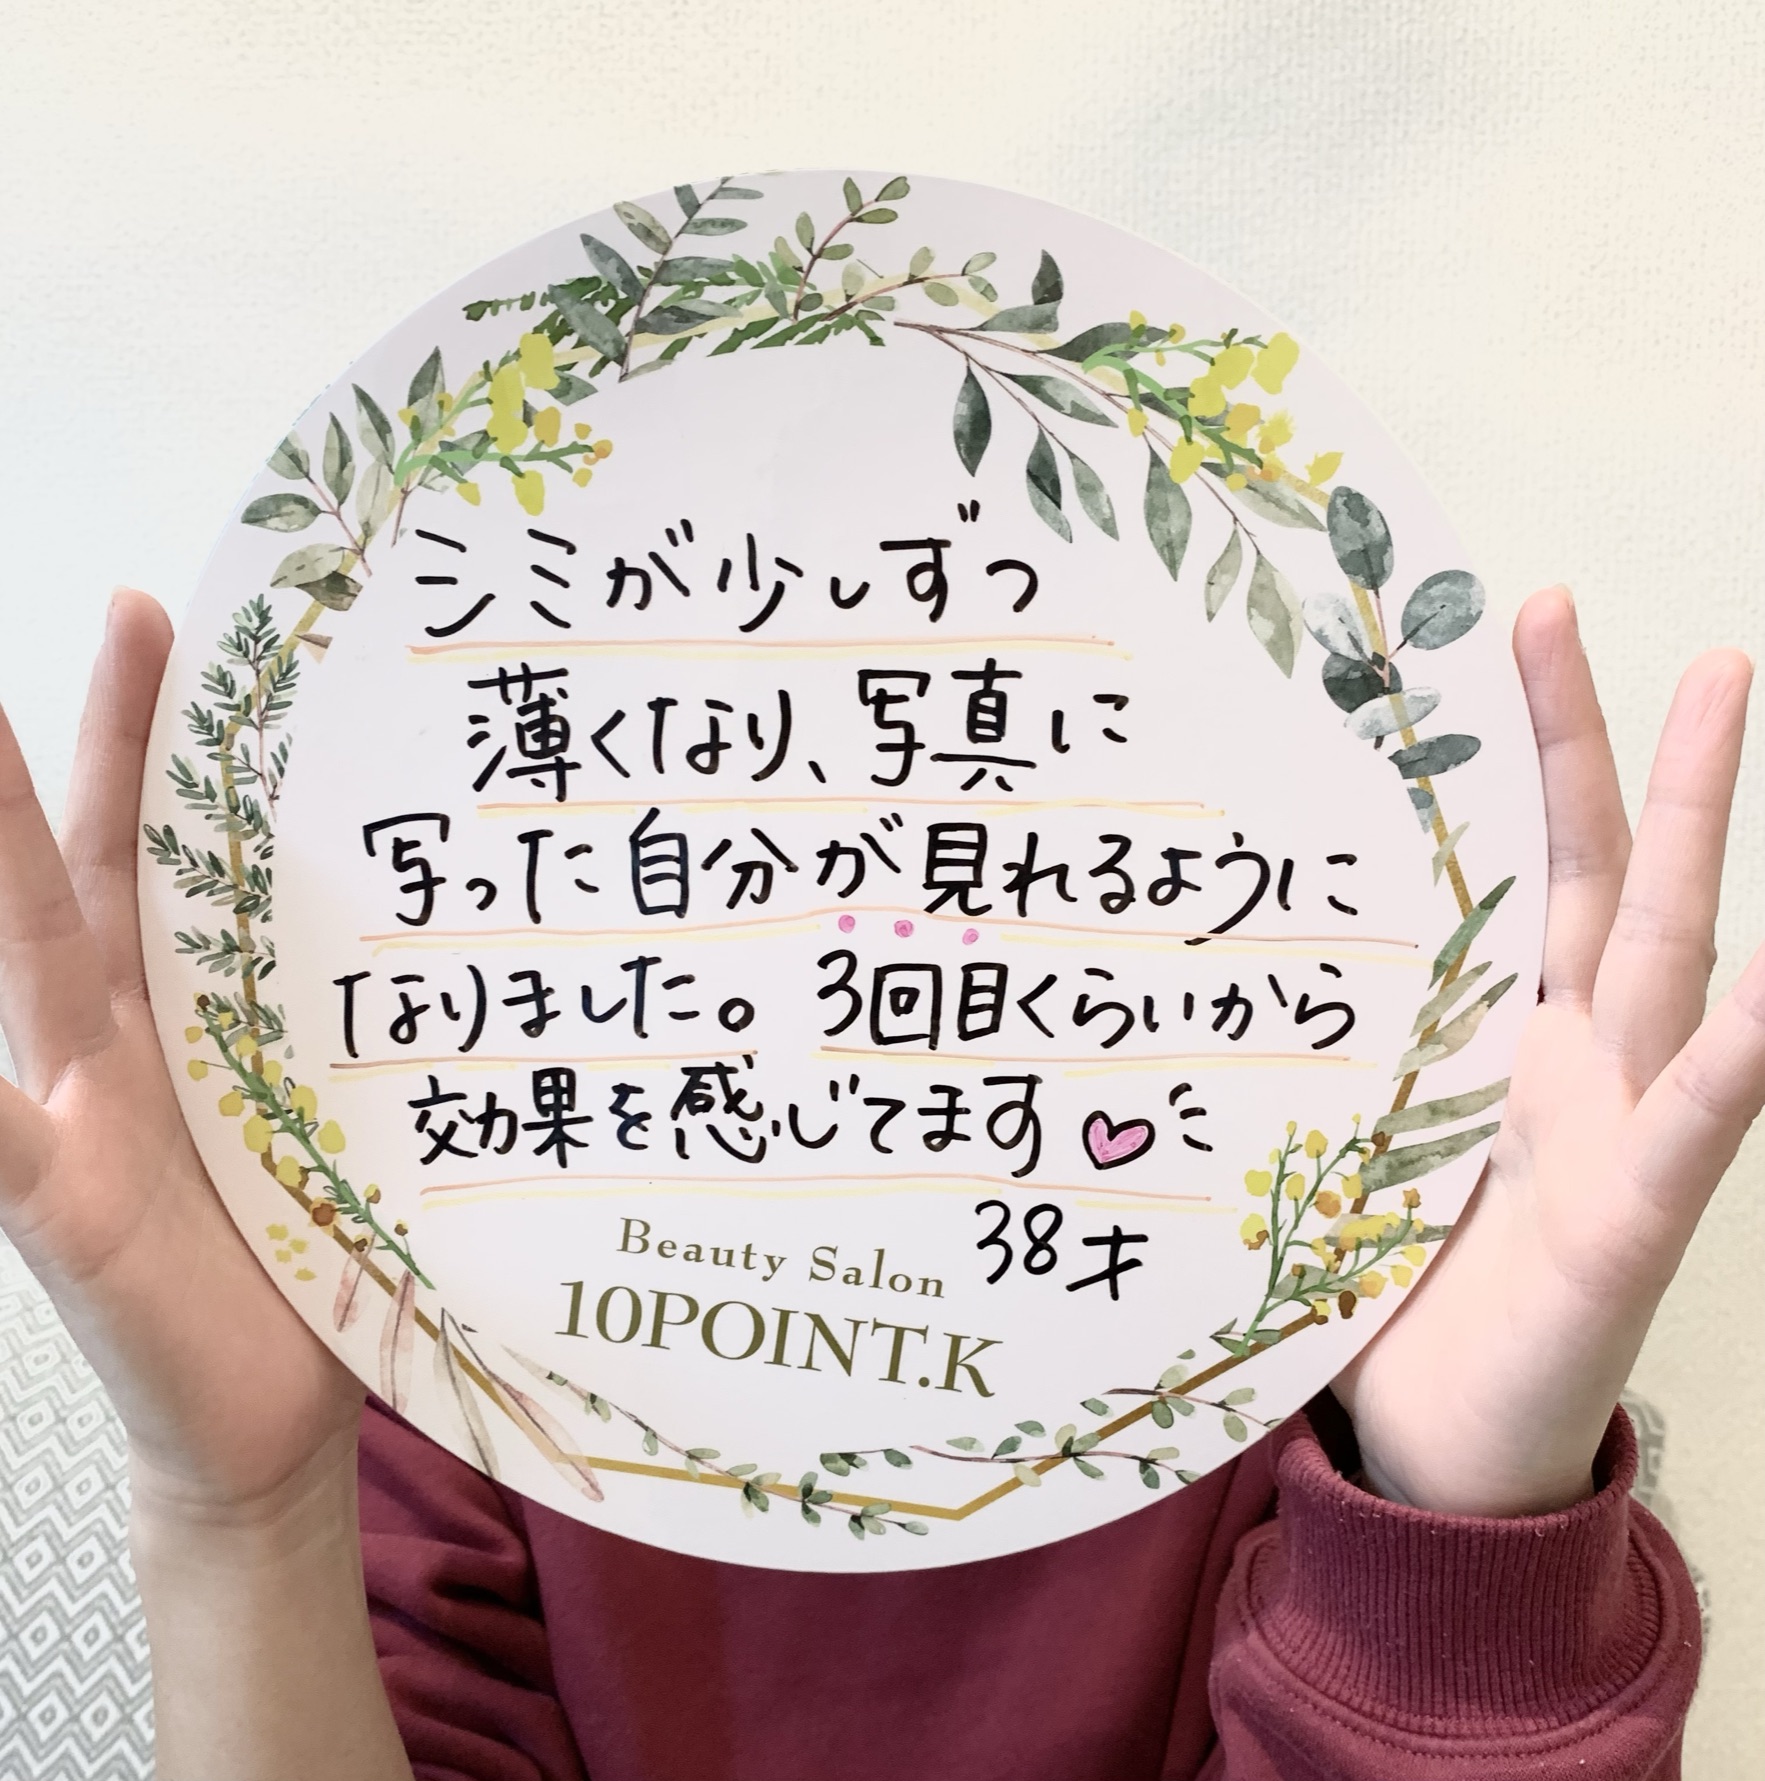 シミが少しずつ
薄くなり、写真に
写った自分が見れるように
なりました。3回目くらいから
効果を感じてます♡
38才
Beauty Salon
10POINT.K